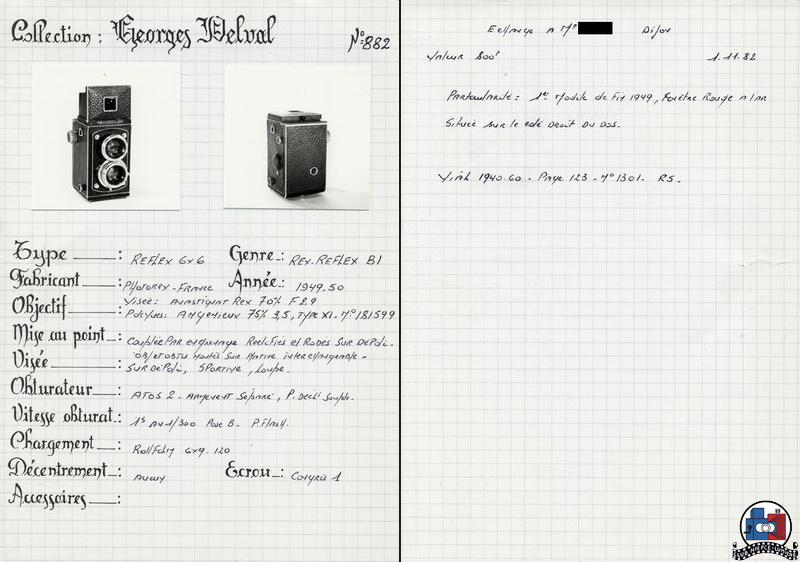 Collection : Georges Delval
N° 882
Type : REFLEX 6x6 Genre : REX-REFLEX B1
Fabricant : PHOTOREX-FRANCE Année : 1949.50
Objectif : Visée: ANASTIGMAT REX 70% F 2.9
ANGENIEUX 75% 3,5, TYPE X1- N° 181599
Mise au point : Couplée PAR engrenage Rectifiés et Rodés SUR DéPoli.
OBJ et OBTU montés SUR Platine interchangeable-
Visée : SUR DéPoli, SPortive, Loupe.
Obturateur : ATOS 2- Armement Séparé, P. Décl. Souple.
Vitesse obturat. : 1s au 1/300 Pose B- P.Flash.
Chargement : Rollfilm 6x9. 120
Décentrement : Aucun Ecrou : Congrès 1
Accessoires :
Echange à Mr Dijon
Valeur 800f 1.11.82
Particularité: 1er Modèle de Fin 1949, Fenêtre Rouge A l'AR
Située sur le coté DROIT DU DOS.
1940-60- Page 123- N° 1301- R5-